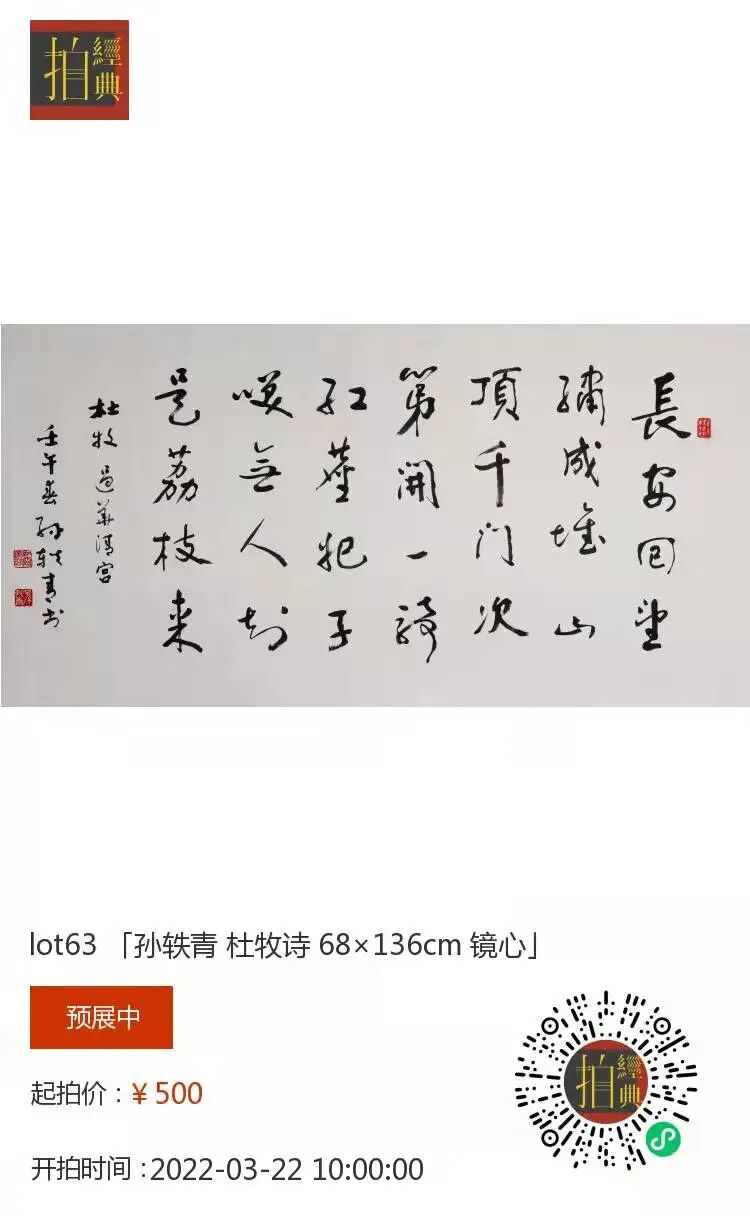 經典拍
長安回望
繡成堆山
頂千门次
第開一騎
紅塵妃子
咲無人知
是荔枝来
杜牧過華清宫
壬午春孙轶青书
lot63 「孙轶青 杜牧诗 68×136cm 镜心」
预展中
起拍价：¥ 500
开拍时间：2022-03-22 10:00:00
經典拍